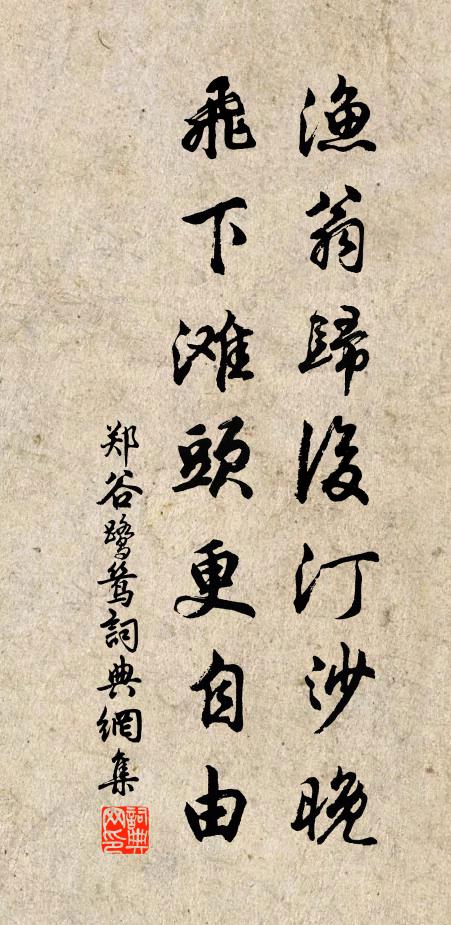 漁翁歸後汀沙晚
飛下滩頭更自由
郑谷鹭鸶詞典網集
詞典网印